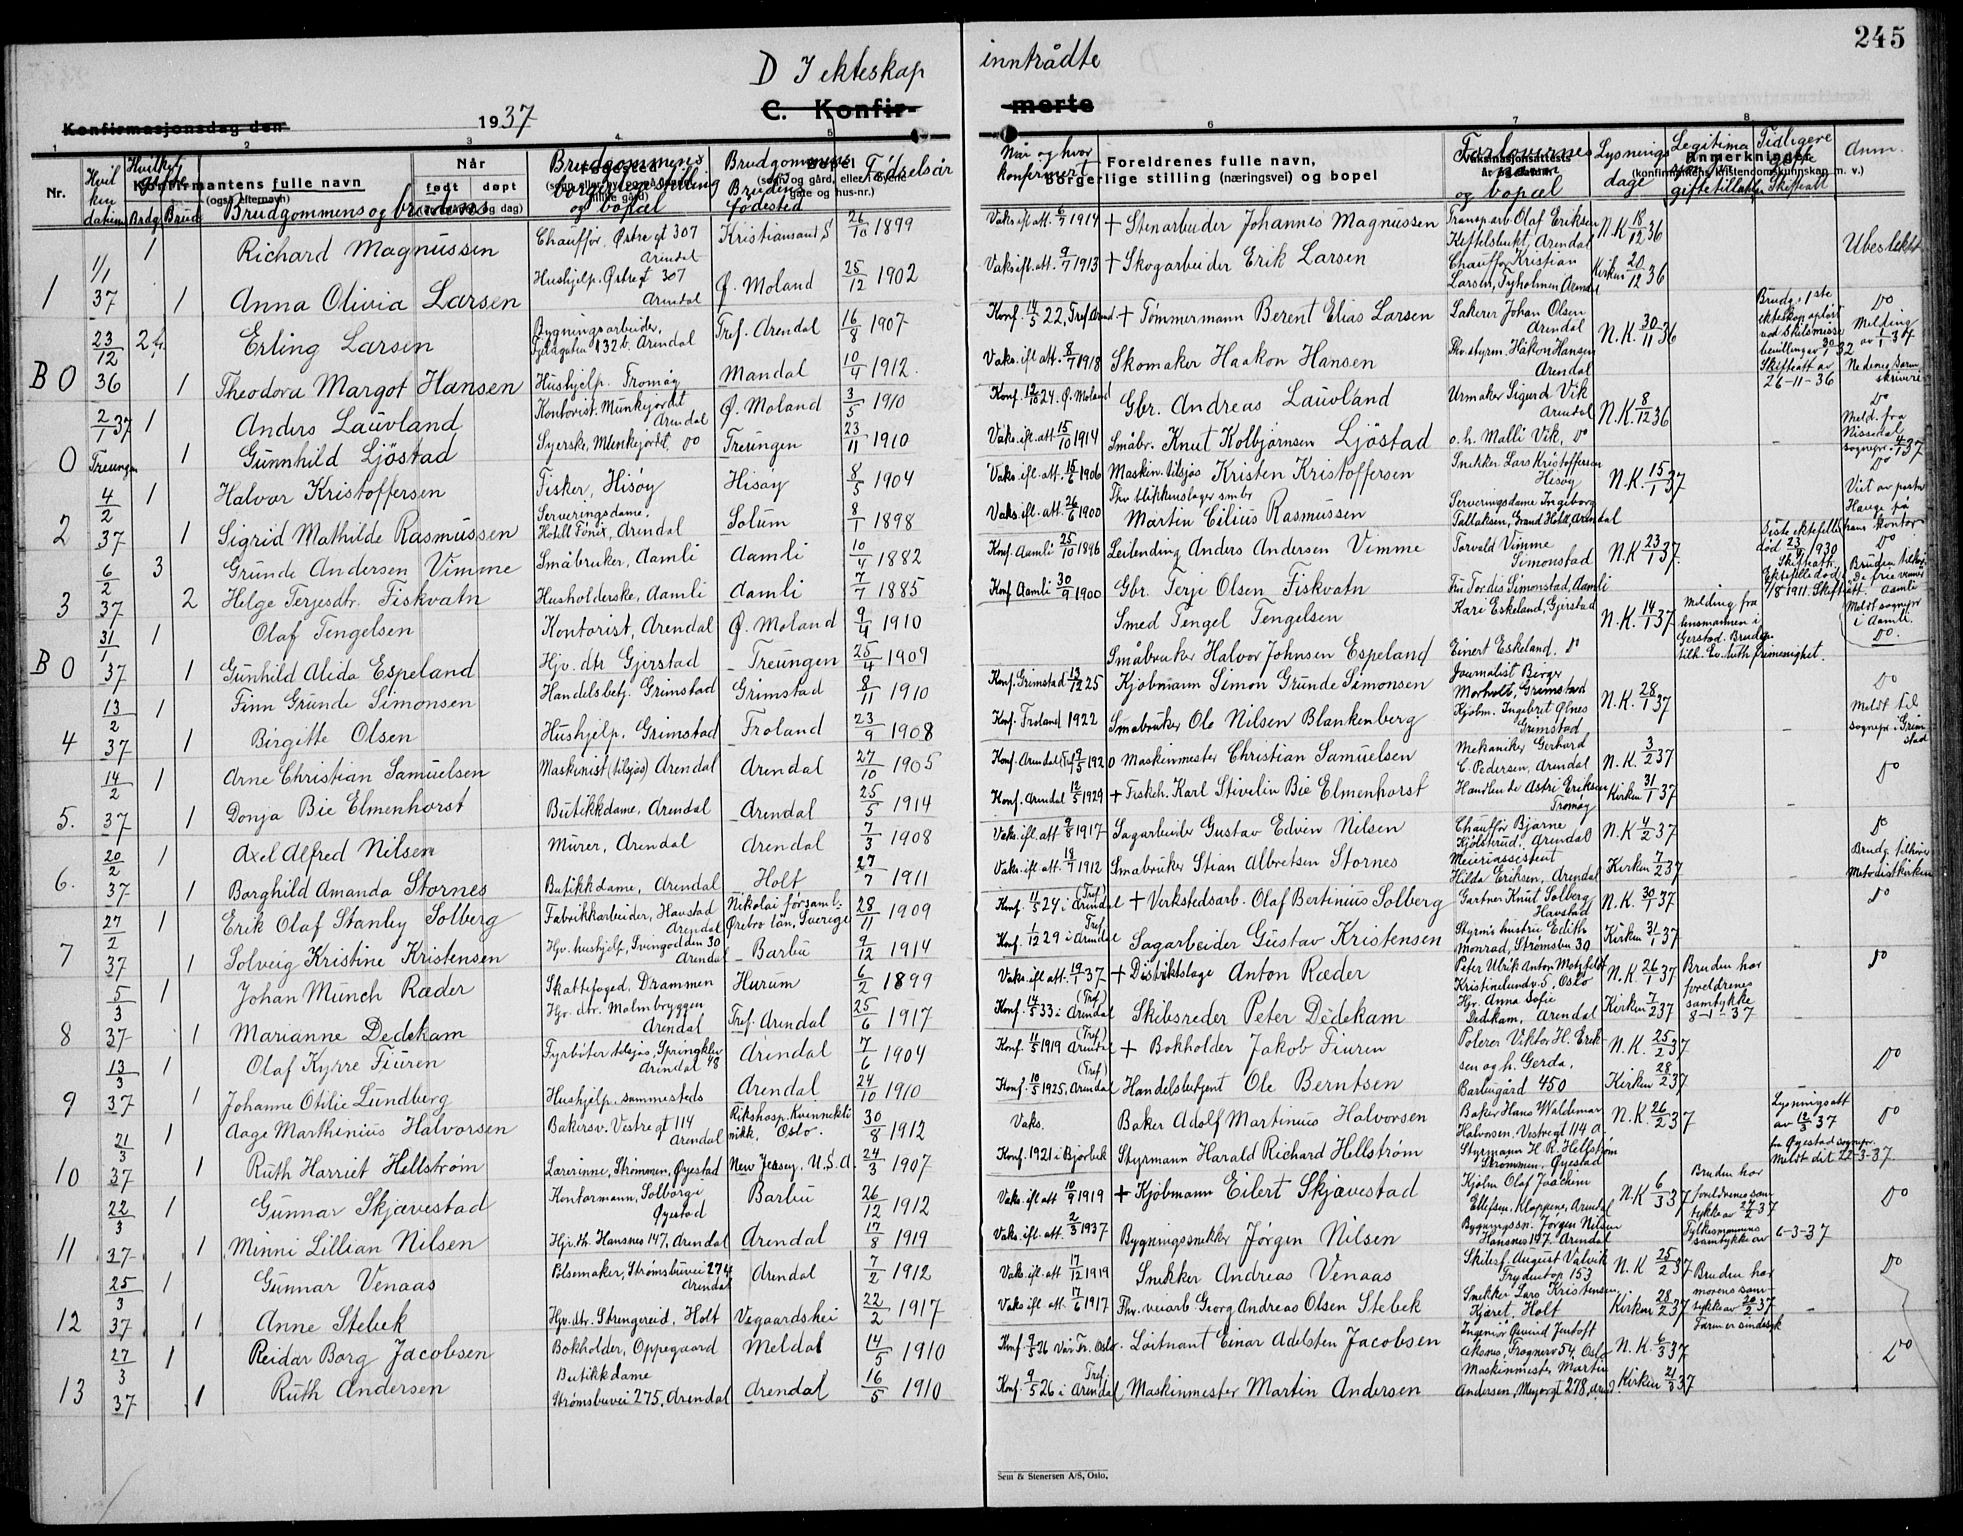 245
D I ekteskap inntrådte
C. Konfir- merte
Konfirmasjonsdag den 1937
1 2 3 4 5 6 7 8
Nr. Hvilken datum Hvilket gifte Brdg. Brud
Konfirmantens fulle navn
(også etternavn)
Brudgommens og brudens
Når
født døpt
Brudgommens borgerl. stilling og bopæl
Brudgommens Brudens fødested
Fødselsår
Når og hvor konfirmert
Foreldrenes fulle navn,
borgerlige stilling (næringsvei) og bopel
Forlovernes navn og bopæl
Lysnings dage
Anmerkninger
(konfirmantens kristendomskunnskap m. v.)
Tidligere gifte Skifteatt
Anm.
1 1/1 37 1 Richard Magnussen Chauffør, Østregt 307 Arendal Kristiansand S 26/10 1899 Vaks. ifl. att. 6/7 1914 + Stenarbeider Johannes Magnussen Transp.arb. Olaf Eriksen Kittelsbukt, Arendal N.K 18/12 36 Ubeslekt
1 Anna Olivia Larsen Hushjelp. Østregt 307 Arendal Ø. Moland 25/12 1902 Vaks. ifl. att. 9/7 1913 + Skogarbeider Erik Larsen Chauffør Kristian Larsen, Tyholmen Arendal Kirken 20/12 36 Do
B 0 23/12 36 2 Erling Larsen Bygningsarbeider, Arendal Tref. Arendal 16/8 1907 Konf. 14/5 22, Tref. Arend. + Tømmermann Berent Elias Larsen Lakerer Johan Olsen Arendal N.K. 30/11 36 Brudg. 1ste ekteskap opløst ved Skilsmisse bevilling av 30/1 32 Skifteatt av 26-11-36 Melding av 1/1 37
1 Theodora Margot Hansen Hushjelp. Tromøy Mandal 10/4 1912. Vaks. ifl. att. 8/7 1918 Skomaker Haakon Hansen Fhv. styrm. Håkon Hansen Arendal Nedenes sorenskriver
0 2/1 37 Treungen 1 Anders Lauvland Kontorist. Munkejordet Arendal Ø. Moland 3/5 1910 Konf. 12/10 24. Ø. Moland Gbr. Andreas Lauvland Urmaker Sigurd Vik Arendal N.K. 8/12 36 Do Meld. fra Nissedal sognepr. 4/1 37
1 Gunnhild Ljøstad Syerske, Munkejordet, Do Treungen 23/11 1910 Vaks. ifl. att. 15/10 1914 Småbr. Knut Kolbjørnsen Ljøstad o. h. Malli Vik, Do
2 4/2 37 1 Halvor Kristoffersen Fisker, Hisøy Hisøy 8/5 1904 Vaks. ifl. att. 15/6 1906 Maskin. tilsjøs Kristen Kristoffersen Snekker Lars Kristoffersen Hisøy N.K. 15/1 37 Do Viet av pastor Hauge på hans kontor
1 Sigrid Mathilde Rasmussen Serveringsdame, Hotell Fönix, Arendal Solum 8/1 1898 Vaks. ifl. att. 26/6 1900 Fhv. blikkenslager smbr Martin Cilius Rasmussen Serveringsdame Ingeborg Tallaksen, Grand Hotel, Arendal
3 6/2 37 3 Grunde Andersen Vimme Småbruker, Aamli Aamli 10/4 1882 Konf. Aamli 25/10 1896 Leilending Anders Andersen Vimme Torvald Vimme Simonstad N.K 23/1 37. Siste ektefelle død 23/9 1930 Skifteatt. Do
2 Helge Terjesdtr. Fiskvatn Husholderske, Aamli Aamli 7/7 1885 Konf. Aamli 30/9 1900 Gbr. Terje Olsen Fiskvatn Fru Tordis Simonstad, Aamli Ektefelle død 7/8 1911. Skifteatt. Bruden tilhør. De frie venner Aamli Meldt sognepr i Aamli.
B 0 31/1 37 1 Olaf Tengelsen Kontorist, Arendal Ø. Moland 9/4 1910 Smed Tengel Tengelsen Kari Eskeland, Gjerstad N.K. 14/1 37 Melding fra lensmannen i Gjerstad. Bruden tilh. Ev. luth. frimenighet. Do.
1 Gunhild Alida Espeland Hjv. dtr Gjerstad Treungen 25/4 1909 Småbruker Halvor Johnsen Espeland Einert Eskeland. Do
4 13/2 37 1 Finn Grunde Simonsen Handelsbetj. Grimstad Grimstad 8/11 1910 Konf. Grimstad 13/12 25 Kjøbmann Simon Grunde Simonsen Journalist Birger Morholt, Grimstad N.K. 28/1 37 Do Meldt til sognepr. i Grimstad
1 Birgitte Olsen Hushjelp. Grimstad Froland 23/9 1908 Konf. Froland 1922 Småbruker Ole Nilsen Blankenberg Kjøbm. Ingebret Ølnes Grimstad
5. 14/2 37 1 Arne Christian Samuelsen Maskinist (tilsjøs) Arendal Arendal 27/10 1905 Konf. Arendal 9/5 1920 Maskinmester Christian Samuelsen Mekaniker Gerhard C. Pedersen, Arendal N.K. 3/2 37 Do
1 Donja Bie Elmenhorst Butikkdame, Arendal Arendal 25/5 1914 Konf. Arendal 12/5 1929 + Fiskeh. Karl Stivelin Bie Elmenhorst Astri Eriksen Tromøy Kirken 31/1 37
6. 20/2 37 1 Axel Alfred Nilsen Murer, Arendal Arendal 7/3 1908 Vaks. ifl. att 9/8 1917 Sagarbeider Gustav Edvin Nilsen Chauffør Bjarne Kjølstrud. Arendal N.K 4/2 37 Do
1 Borghild Amanda Stornes Butikkdame, Arendal Holt 27/7 1911 Vaks. ifl att. 18/7 1912 Småbruker Stian Albretsen Stornes Meieriassistent Hilda Eriksen, Arendal Kirken 7/2 37 Brudg. tilhører Metodistkirken
7 27/2 37 1 Erik Olaf Stanley Solberg Fabrikkarbeider, Havstad Arendal Nikolai forsaml. Örebro län, Sverige 28/11 1909 Konf. 11/5 24 i Arendal (Tref.) + Verkstedsarb. Olaf Bertinius Solberg Gartner Knut Solberg Havstad N.K. 30/1 37 Do
1 Solveig Kristine Kristensen Hjv. hushjelp, Svingodden 30 Arendal Barbu 9/12 1914 Konf. 1/12 29 i Arendal Tref. Sagarbeider Gustav Kristensen Styrm's hustru Edith Monrad, Strømsbu 30 Kirken 31/1 37
8 5/3 37 1 Johan Munch Ræder Skattefoged, Drammen Hurum 6/2 1899 Vaks. ifl att 19/1 37 + Distriktslæge Anton Ræder Peter Ulrik Anton Motzfeldt Kristinelundv. 5, Oslo N.K 26/1 37 Bruden har foreldrenes samtykke 8-1-37 Do
1 Marianne Dedekam Hjv. dtr. Malmbryggen Arendal Tref. Arendal 25/6 1917 Konf. 14/5 33 i Arendal (Tref) Skibsreder Peter Dedekam Hjv. Anna Sofie Dedekam, Arendal Kirken 7/2 37
9 13/3 37 1 Olaf Kyrre Fiuren Fyrbøter tilsjøs, Springklev Arendal 48 Arendal 7/6 1904 Konf. 11/5 1919 Arendal (Tref) + Bokholder Jakob Fiuren Polerer Viktor H. Eriksen og h. Gerda, N.K. 25/2 37 Do
1 Johanne Otilie Lundberg Hushjelp. sammesteds Arendal 24/10 1910 Konf. 10/5 1925, Arendal (Tref) Handelsbetjent Ole Berntsen Barbugård 450 Kirken 28/2 37
10 21/3 37 1 Aage Marthinius Halvorsen Bakersv. Vestregt 114 Arendal Rikshosp. Kvinneklinikk, Oslo. 30/8 1912 Vaks. Baker Adolf Martinius Halvorsen Baker Hans Waldemar Halvorsen, Vestregt 114 a N.K. 26/2 37 Lysningsatt av 12/3 37 fra Øyestad sognepr. Meldt dit 22-3-37 Do
1 Ruth Harriet Hellstrøm Lærerinne, Strømmen, Øyestad New Jersey, U.S.A. 24/3 1907 Konf. 1921 i Bjorbek Styrmann Harald Richard Hellstrøm Styrmann H. R. Hellstrøm Strømmen, Øyestad
11 22/3 37 1 Gunnar Skjævestad Kontormann, Solborge Øyestad Barbu 26/12 1912 Vaks ifl att 10/9 1919 + Kjøbmann Eilert Skjævestad Kjøbm Olaf Joachim Ellefsen, Kloppene, Arendal N.K 6/3 37 Bruden har foreldrenes samtykke av 27/2 37 Do
1 Minni Lillian Nilsen Hjv. th. Hansnes 147, Arendal Arendal 17/8 1919 Vaks. ifl. att. 2/3 1937 Bygningssnekker Jørgen Nilsen Bygningssn. Jørgen Nilsen Hansnes 147, Arendal Fylkesmannens samtykke av 6-3-37
12 25/3 37 1 Gunnar Venaas Pølsemaker, Strømsbuvei 274 Arendal Arendal 7/2 1912 Vaks ifl. att 17/12 1919 Snekker Andreas Venaas August Valvik Frydentop 153 N.K 25/2 37 Bruden har morens samtykke av 20/2 37 Farm er sindssyk Do
1 Anne Stebek Hjv. dtr. Strengereid, Holt Vegaardshei 22/2 1917 Vaks ifl. att. 17/6 1917 Fhv. veiarb Georg Andreas Olsen Stebek Snekker Lars Kristensen Kjæret, Holt Kirken 28/2 37
13 27/3 37 1 Reidar Borg Jacobsen Bokholder, Oppegaard Meldal 14/5 1910 Konf 9/5 26 Vår Fr. Oslo. Løitnant Einar Adelsten Jacobsen Ingeniør Øivind Justoft Aksnes, Frognerv 54, Oslo N.K. 6/3 37 Do
1 Ruth Andersen Butikkdame Strømsbuvei 275, Arendal Arendal 16/5 1910 Konf. 9/5 26 i Arendal Tref. Maskinmester Martin Andersen Maskinmester Martin Andersen, Meyergt 278, Arend. Kirken 21/3 37
Sem & Stenersen A/S, Oslo.